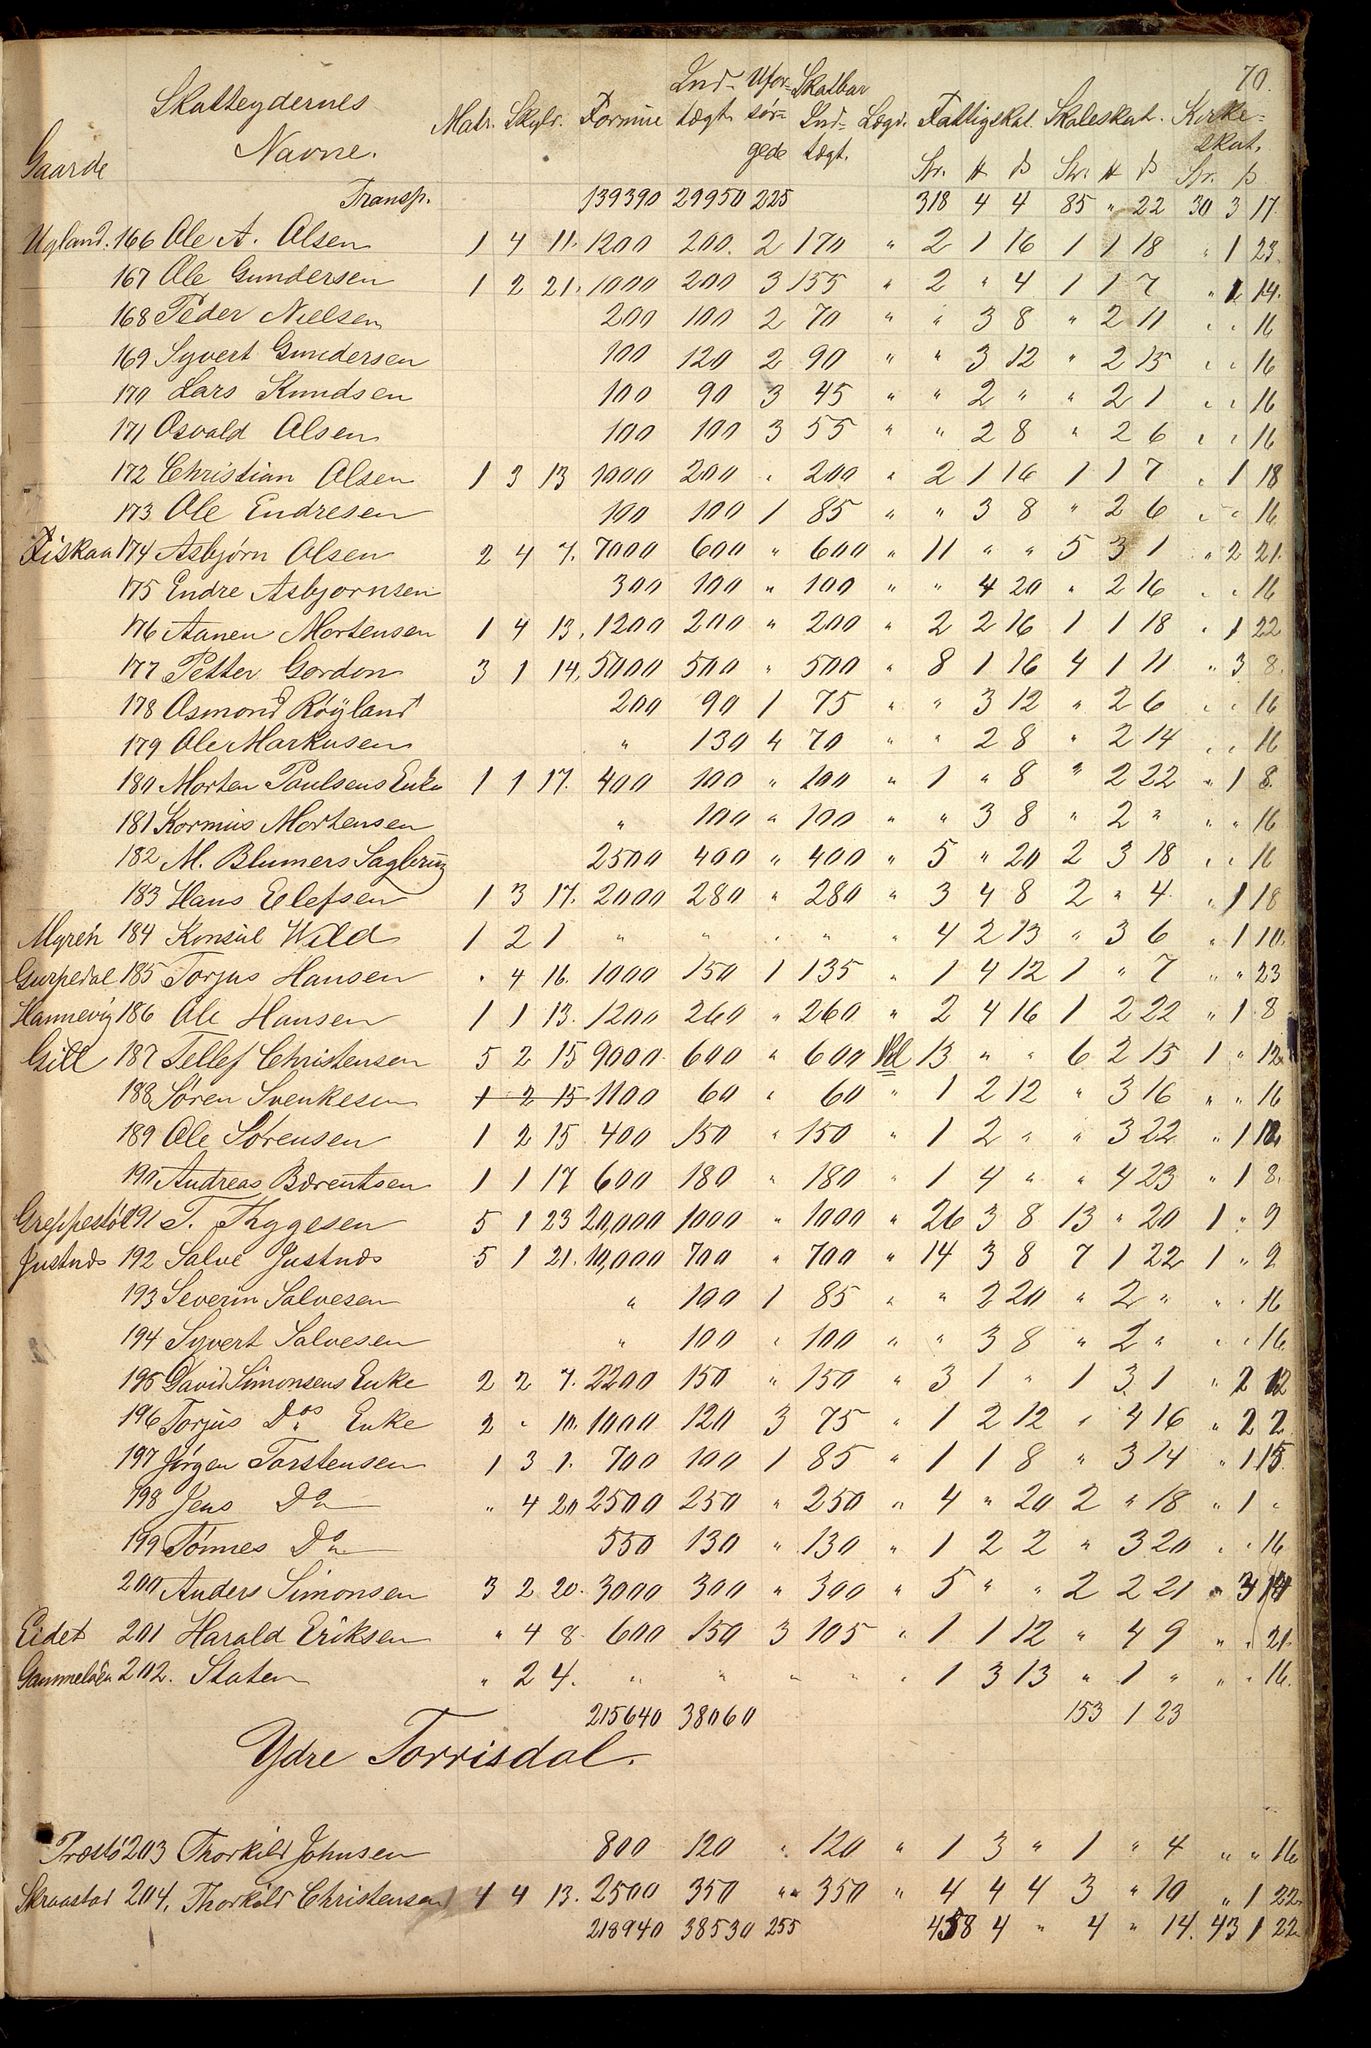 70.
Gaarde Skatteydernes Navne. Matr. Skyld. Formue Ind- tægt Ufor- sør- gede Skatbar Ind- tægt. Lægd. Fattigskat. Skoleskat. Kirke- skat.
Spr. # ß Spr. # ß Spr. ß
Transp. 139390 29950 225 318 4 4 85 " 22 30 3 17.
Ugland. 166 Ole A. Olsen 1 4 11. 1200 200. 2 170 " 2 1 16 1 1 18 " 1 23.
167 Ole Gundersen 1 2 21. 1000 200 3 155 " 2 " 4 1 1 7 " 1 14.
168 Peder Nielsen 200 100 2 70 " " 3 8 " 2 11 " " 16
169 Syvert Gundersen 100 120 2 90 " " 3 12 " 2 15 " " 16
170 Lars Knudsen 100 90 3 45 " " 2 " " 2 1 " " 16
171 Osvald Olsen 100 100 3 55 " " 2 8 " 2 6 " " 16
172 Christian Olsen 1 3 13 1000 200 " 200 " 2 1 16 1 1 7 " 1 18
173 Ole Endresen 100 100 1 85 " " 3 8 " 2 6 " " 16
Fiskaa 174 Asbjørn Olsen 2 4 7. 7000 600 " 600 " 11 " " 5 3 1 " 2 21.
175 Endre Asbjørnsen 300 100 " 100 " " 4 20 " 2 16 " " 16
176 Aanen Mortensen 1 4 13. 1200 200 " 200 " 2 2 16 1 1 18 " 1 22
177 Petter Gordon 3 1 14. 5000 500 " 500 " 8 1 16 4 1 11 " 3 8.
178 Osmond Röyland 200 90 1 75 " " 3 12 " 2 6 " " 16
179 Ole Markusen " 130 4 70 " " 2 8 " 2 14 " " 16
180 Morten Paulsens Enke 1 1 17. 400 100 " 100 " 1 " 8 " 2 22 " 1 8.
181 Kornius Mortensen " 100 " 100 " " 3 8 " 2 " " " 16
182 M. Blumers Sagbrug 2500 400 " 400 " 5 " 20 2 3 18 " " 16
183 Hans Elefsen 1 3 17. 2000 280 " 280 " 3 4 8 2 " 4 " 1 18
Myren 184 Konsul Wild 1 2 1 " " " " 4 2 13 " 3 6 " 1 10.
Gurpedal 185 Torjus Hansen " 4 16. 1000 150 1 135 " 1 4 12 1 " 7 " " 23
Hannevig 186 Ole Hansen 1 1 13. 1200 260 " 260 " 2 4 16 1 2 22 " 1 8
Gill 187 Tellef Christensen 5 2 15 9000 600 " 600 13 " " 6 2 15 1 " 12.
188 Søren Svenkesen 1 2 15 1100 60 " 60 " 1 2 12 " 3 16 " " 16
189 Ole Sørensen 1 2 15. 400 150 " 150 " 1 2 " " 3 22 " 1 12
190 Andreas Bærentsen 1 1 17 600 180 " 180 " 1 4 " " 4 23 " 1 8.
Greppestöl 191 T. Thygesen 5 1 23 20,000 1000 " 1000 " 26 3 8 13 " 20 1 " 9
Justnæs 192 Salve Justnæs 5 1 21. 10,000 700 " 700 " 14 3 8 7 1 22 1 " 9
193 Severin Salvesen " 100 1 85 " " 2 20 " 2 " " " 16
194 Syvert Salvesen " 100 " 100 " " 3 8 " 2 " " " 16
195 David Simonsens Enke 2 2 7. 2200 150 " 150 " 3 1 " 1 3 1 " 2 12
196 Torjus Do Enke 2 " 10. 1000 120 3 75 " 1 2 12 " 4 16 " 2 2
197 Jørgen Torstensen 1 3 1. 700 100 1 85 " 1 1 8 " 3 14 " 1 15.
198 Jens Do " 4 20 2500 250 " 250 " 4 " 20 2 " 18 " 1 "
199 Tønnes Do 550 130 " 130 " 1 2 2 " 3 20 " " 16
200 Anders Simonsen 3 2 20. 3000 300 " 300 " 5 " " 2 2 21 " 3 14
Eidet 201 Harald Eriksen " 4 8 600 150 3 105 " 1 1 12 " 4 9 " " 21.
202. Staten " 2 4. " " " " " 1 3 13 " 1 " " " 16.
215640 38060 153 1 23
Ydre Torrisdal.
Præstö 203 Thorkild Johnsen 800 120 " 120 " 1 3 " 1 " 4 " " 16
Skraastad 204. Thorkild Christensen 4 4 13. 2500 350 " 350 " 4 4 4 3 " 10 " 1 22.
218940 38530 255 458 4 " 4 " 14. 43 1 22